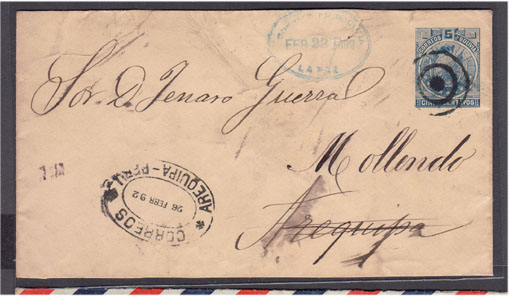 FEB 22 1892
LA PAZ
CORREOS 5 BOLIVIA
CINCO CENTAVOS
Sor. D. Jenaro Guerra
Mollendo
Arequipa
CORREOS
26 FEBR 92
* AREQUIPA - PERU